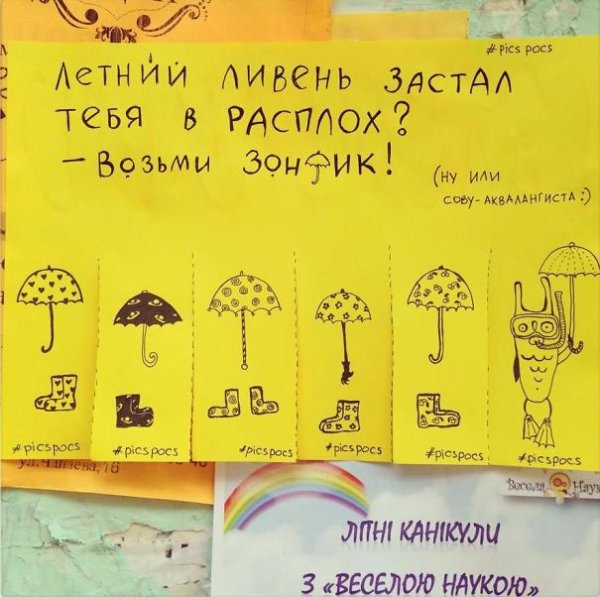 #pics pocs
Летний ливень застал
тебя в расплох?
– Возьми зонтик!
(ну или
сову-аквалангиста :)
#picspocs
#picspocs
#picspocs
#picspocs
#picspocs
#picspocs
Весела Наук
ЛІТНІ КАНІКУЛИ
З «ВЕСЕЛОЮ НАУКОЮ»